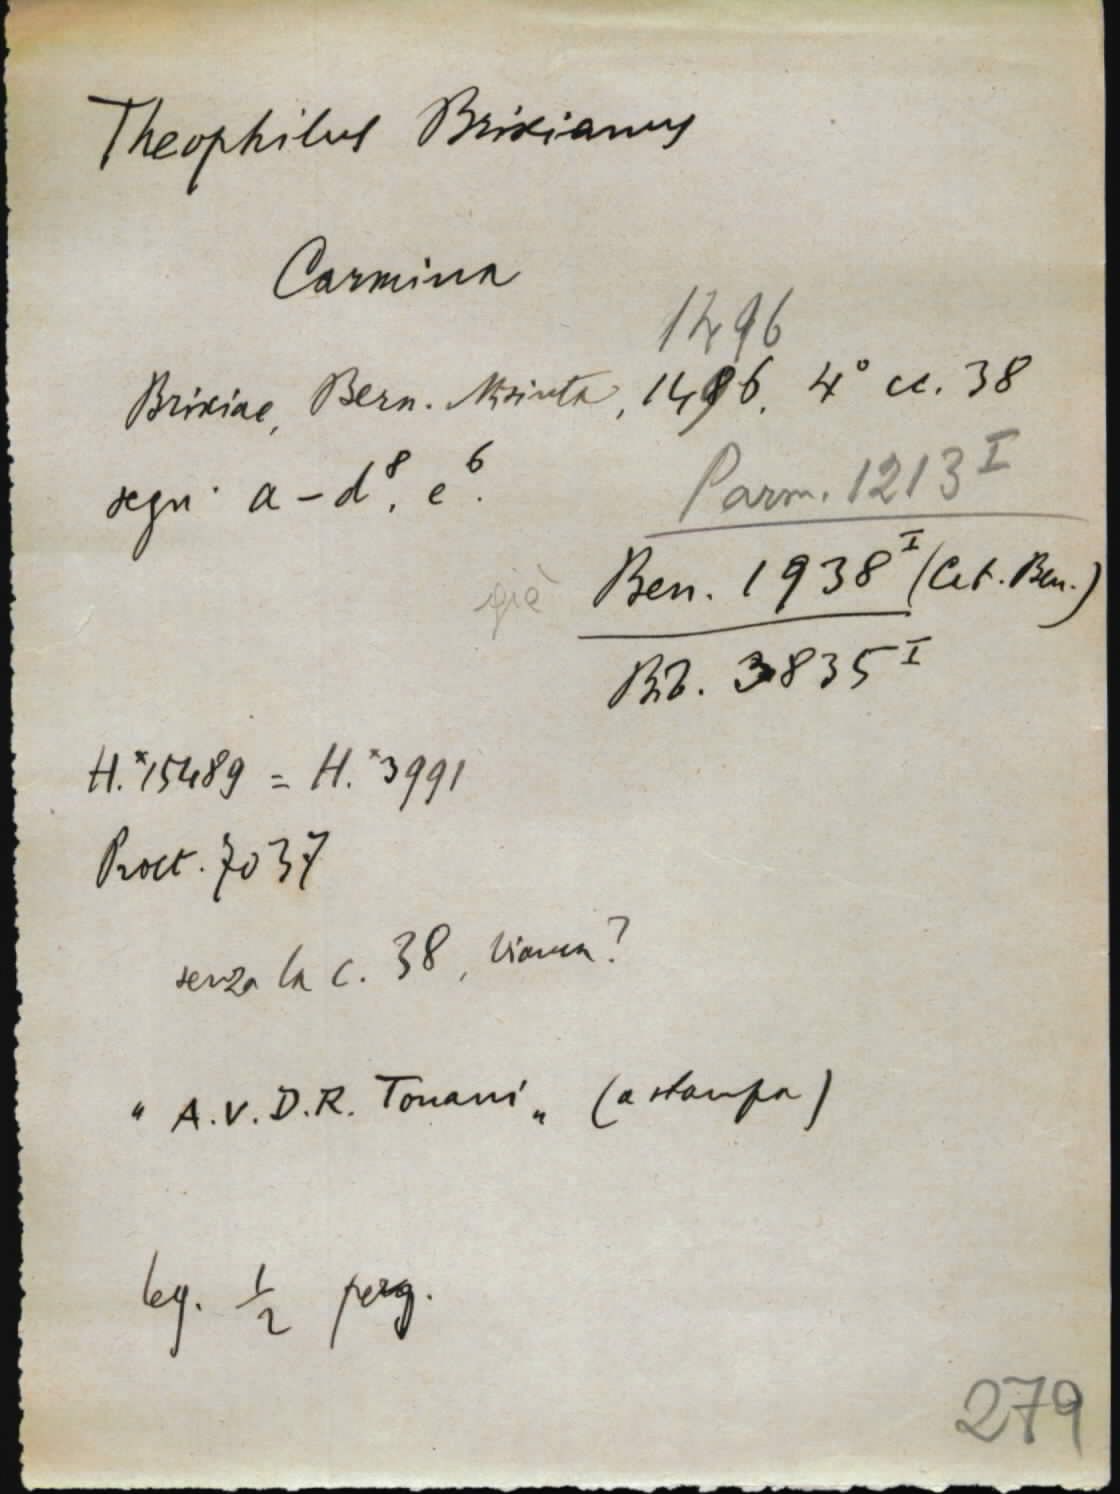 Theophilus Brixianus
Carmina
1496
Brixiae, Bern. Misinta, 1496. 4° cc. 38
segn. a-d⁸, e⁶.
Parm. 1213ᴵ
già Ben. 1938ᴵ (Cat. Ben.)
BB. 3835ᴵ
H.*15489 = H.*3991
Proct. 7037
senza la c. 38, bianca?
"A.V.D.R. Tonani" (a stampa)
leg. 1/2 perg.
279